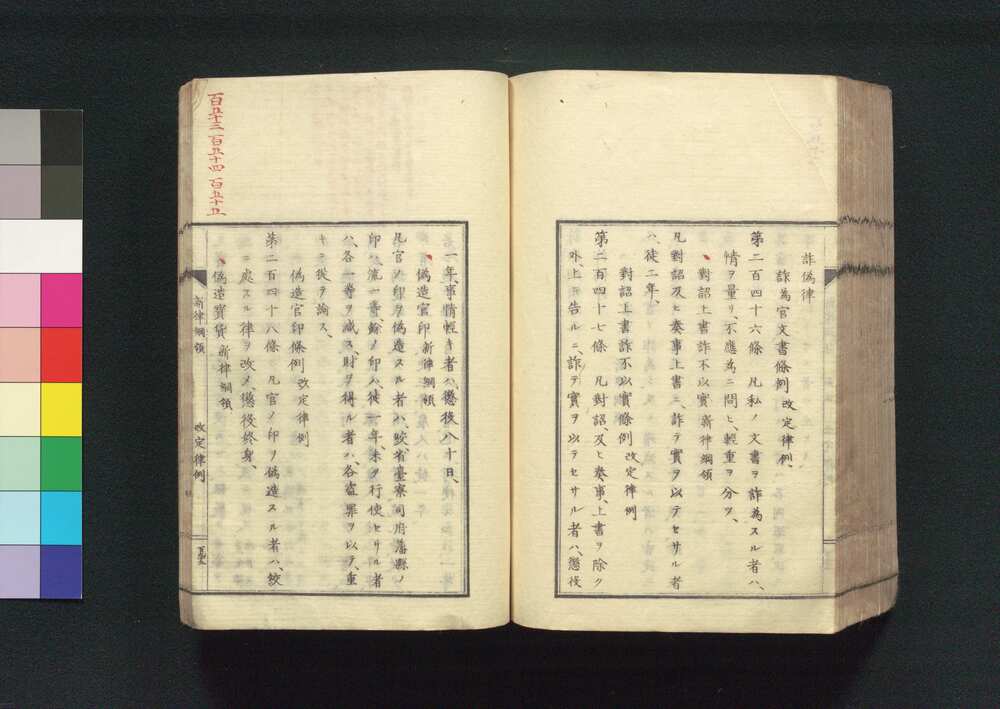 詐偽律
詐為官文書條例 改定律例、
第二百四十六條 凡私ノ文書ヲ詐為スル者ハ、
情ヲ量リ、不應為ニ問ヒ、輕重ヲ分ツ、
對詔上書詐不以實 新律綱領
凡對詔及ヒ奏事上書ニ、詐テ實ヲ以テセサル者
ハ、徒二年、
對詔上書詐不以實條例 改定律例
第二百四十七條 凡對詔、及ヒ奏事、上書ヲ除ク
外、上ニ告ルニ、詐テ實ヲ以テセサル者ハ、懲役
一年、事情輕キ者ハ、懲役八十日、
偽造官印 新律綱領
凡官ノ印ヲ偽造スル者ハ、絞、省臺寮司府藩縣ノ
印ハ、流一等、餘ノ印ハ、徒一年、未タ行使セサル者
ハ、各一等ヲ減ス、財ヲ得ル者ハ、各盗罪ヲ以テ、重
キニ從テ論ス、
偽造官印條例 改定律例
第二百四十八條 凡官ノ印ヲ偽造スル者ハ、絞
ニ處スル律ヲ改メ、懲役終身、
偽造寳貨 新律綱領
新律綱領 改定律例
百五十三 百五十四 百五十五